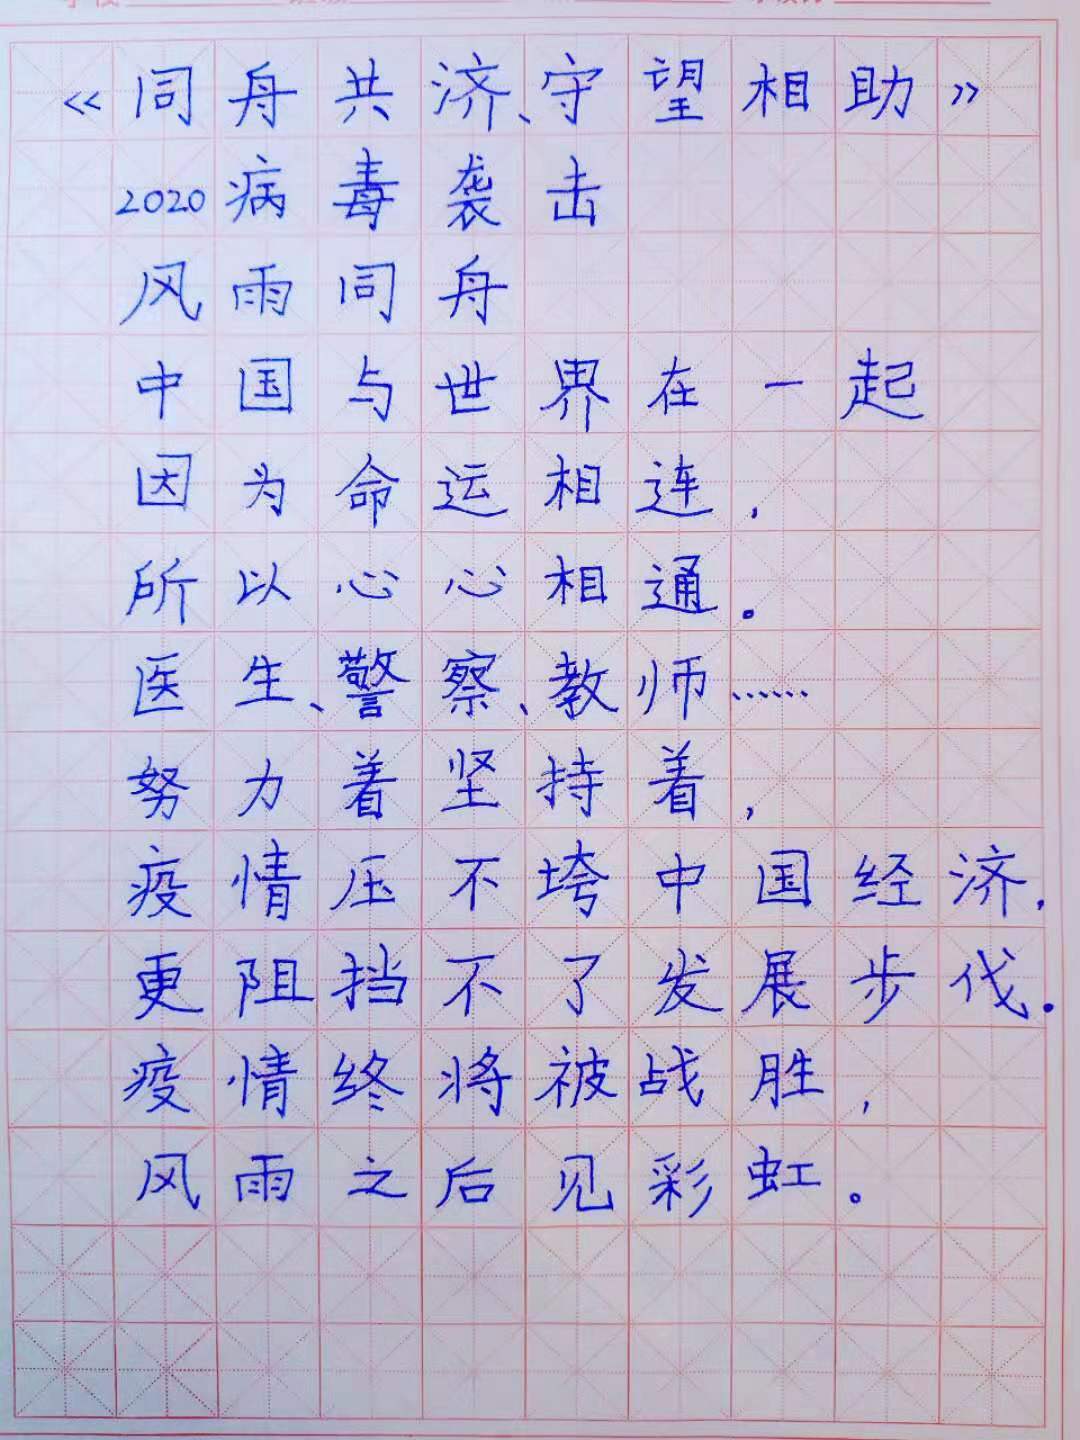 《同舟共济、守望相助》
2020病毒袭击
风雨同舟
中国与世界在一起
因为命运相连，
所以心心相通。
医生、警察、教师……
努力着坚持着，
疫情压不垮中国经济，
更阻挡不了发展步伐。
疫情终将被战胜，
风雨之后见彩虹。